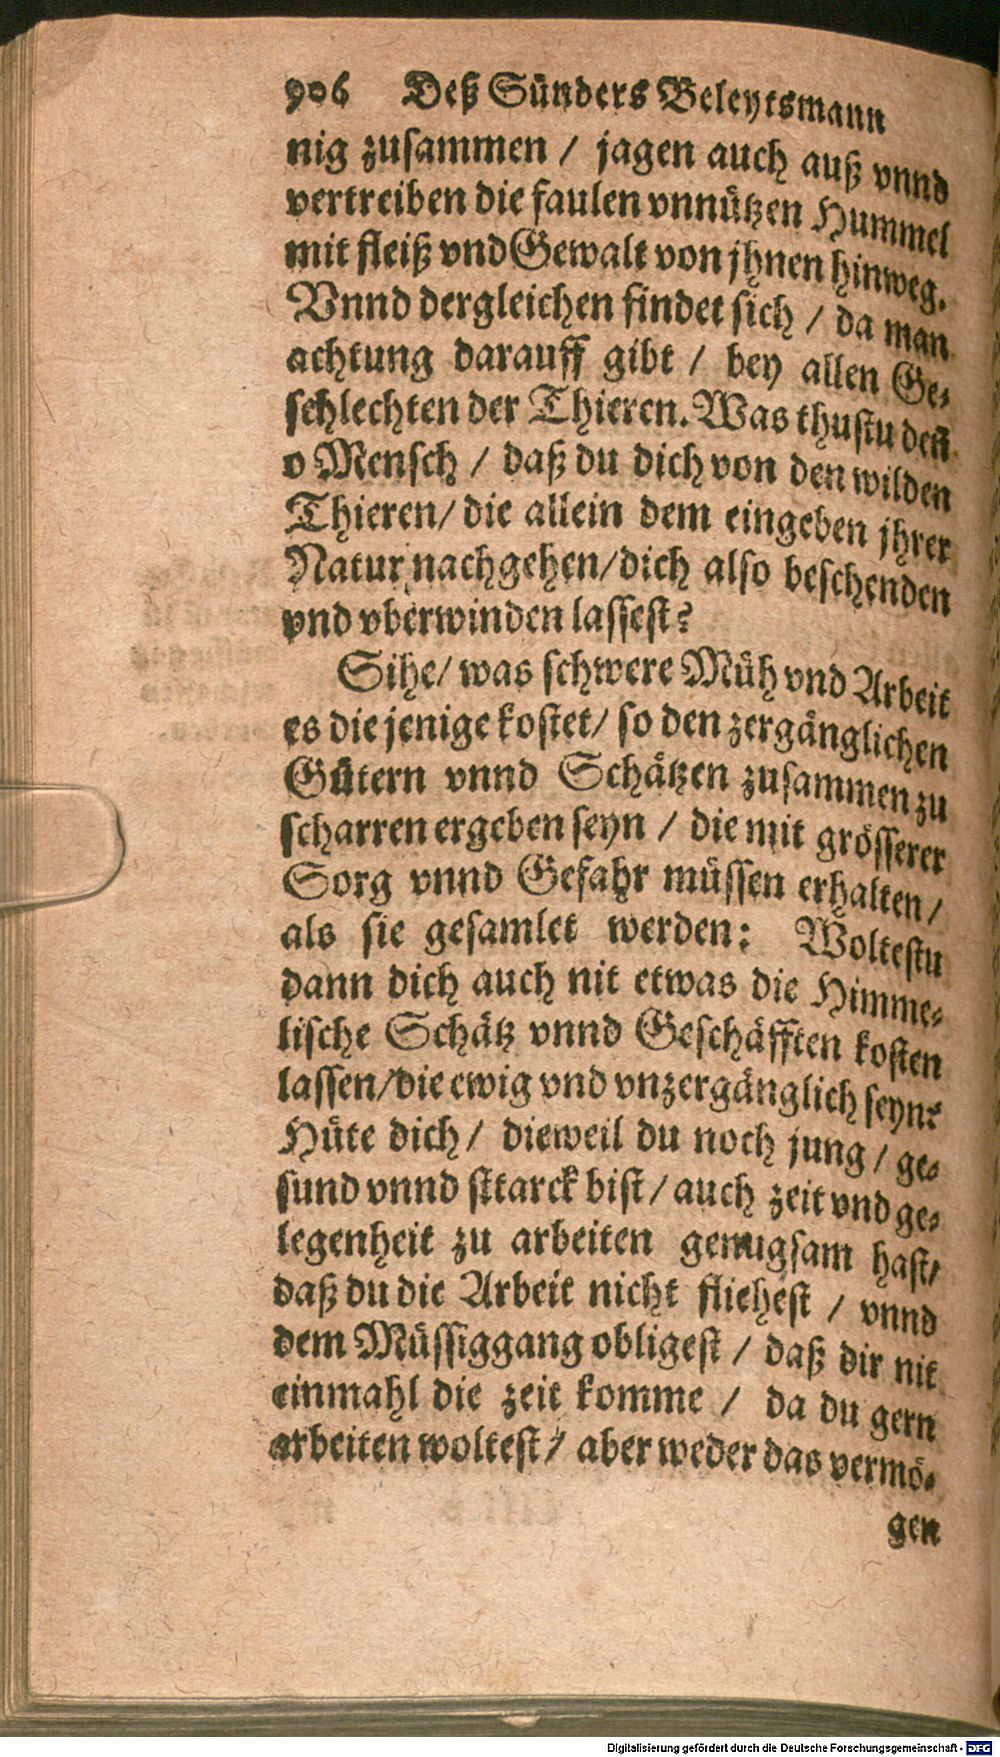 906 Deß Sünders Beleytsmann
nig zusammen / jagen auch auß vnnd
vertreiben die faulen vnnützen Hummel
mit fleiß vnd Gewalt von jhnen hinweg.
Vnnd dergleichen findet sich / da man
achtung darauff gibt / bey allen Ge-
schlechten der Thieren. Was thustu deñ
o Mensch / daß du dich von den wilden
Thieren/ die allein dem eingeben jhrer
Natur nachgehen/dich also beschenden
vnd vberwinden lassest?
Sihe/ was schwere Müh vnd Arbeit
es die jenige kostet/ so den zergänglichen
Gütern vnnd Schätzen zusammen zu
scharren ergeben seyn / die mit grösserer
Sorg vnnd Gefahr müssen erhalten /
als sie gesamlet werden: Woltestu
dann dich auch nit etwas die Himme-
lische Schätz vnnd Geschäfften kosten
lassen/die ewig vnd vnzergänglich seyn?
Hüte dich / dieweil du noch jung / ge-
sund vnnd sttarck bist / auch zeit vnd ge-
legenheit zu arbeiten genugsam hast/
daß du die Arbeit nicht fliehest / vnnd
dem Müssiggang obligest / daß dir nit
einmahl die zeit komme / da du gern
arbeiten woltest / aber weder das vermö-
gen
Digitalisierung gefördert durch die Deutsche Forschungsgemeinschaft - DFG